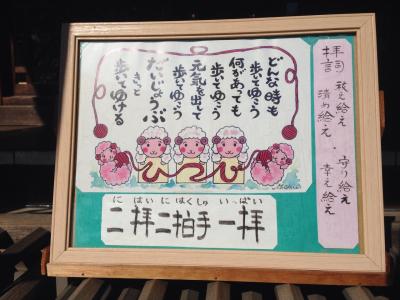 拝詞 祓え給え 清め給え ・ 守り給え 幸え給え
どんな時も
歩いてゆこう
何があっても
歩いてゆこう
元気を出して
歩いてゆこう
だいじょうぶ
きっと
歩いてゆける
ひつじ
にはいにはくしゅいっぱい
二拝二拍手一拝